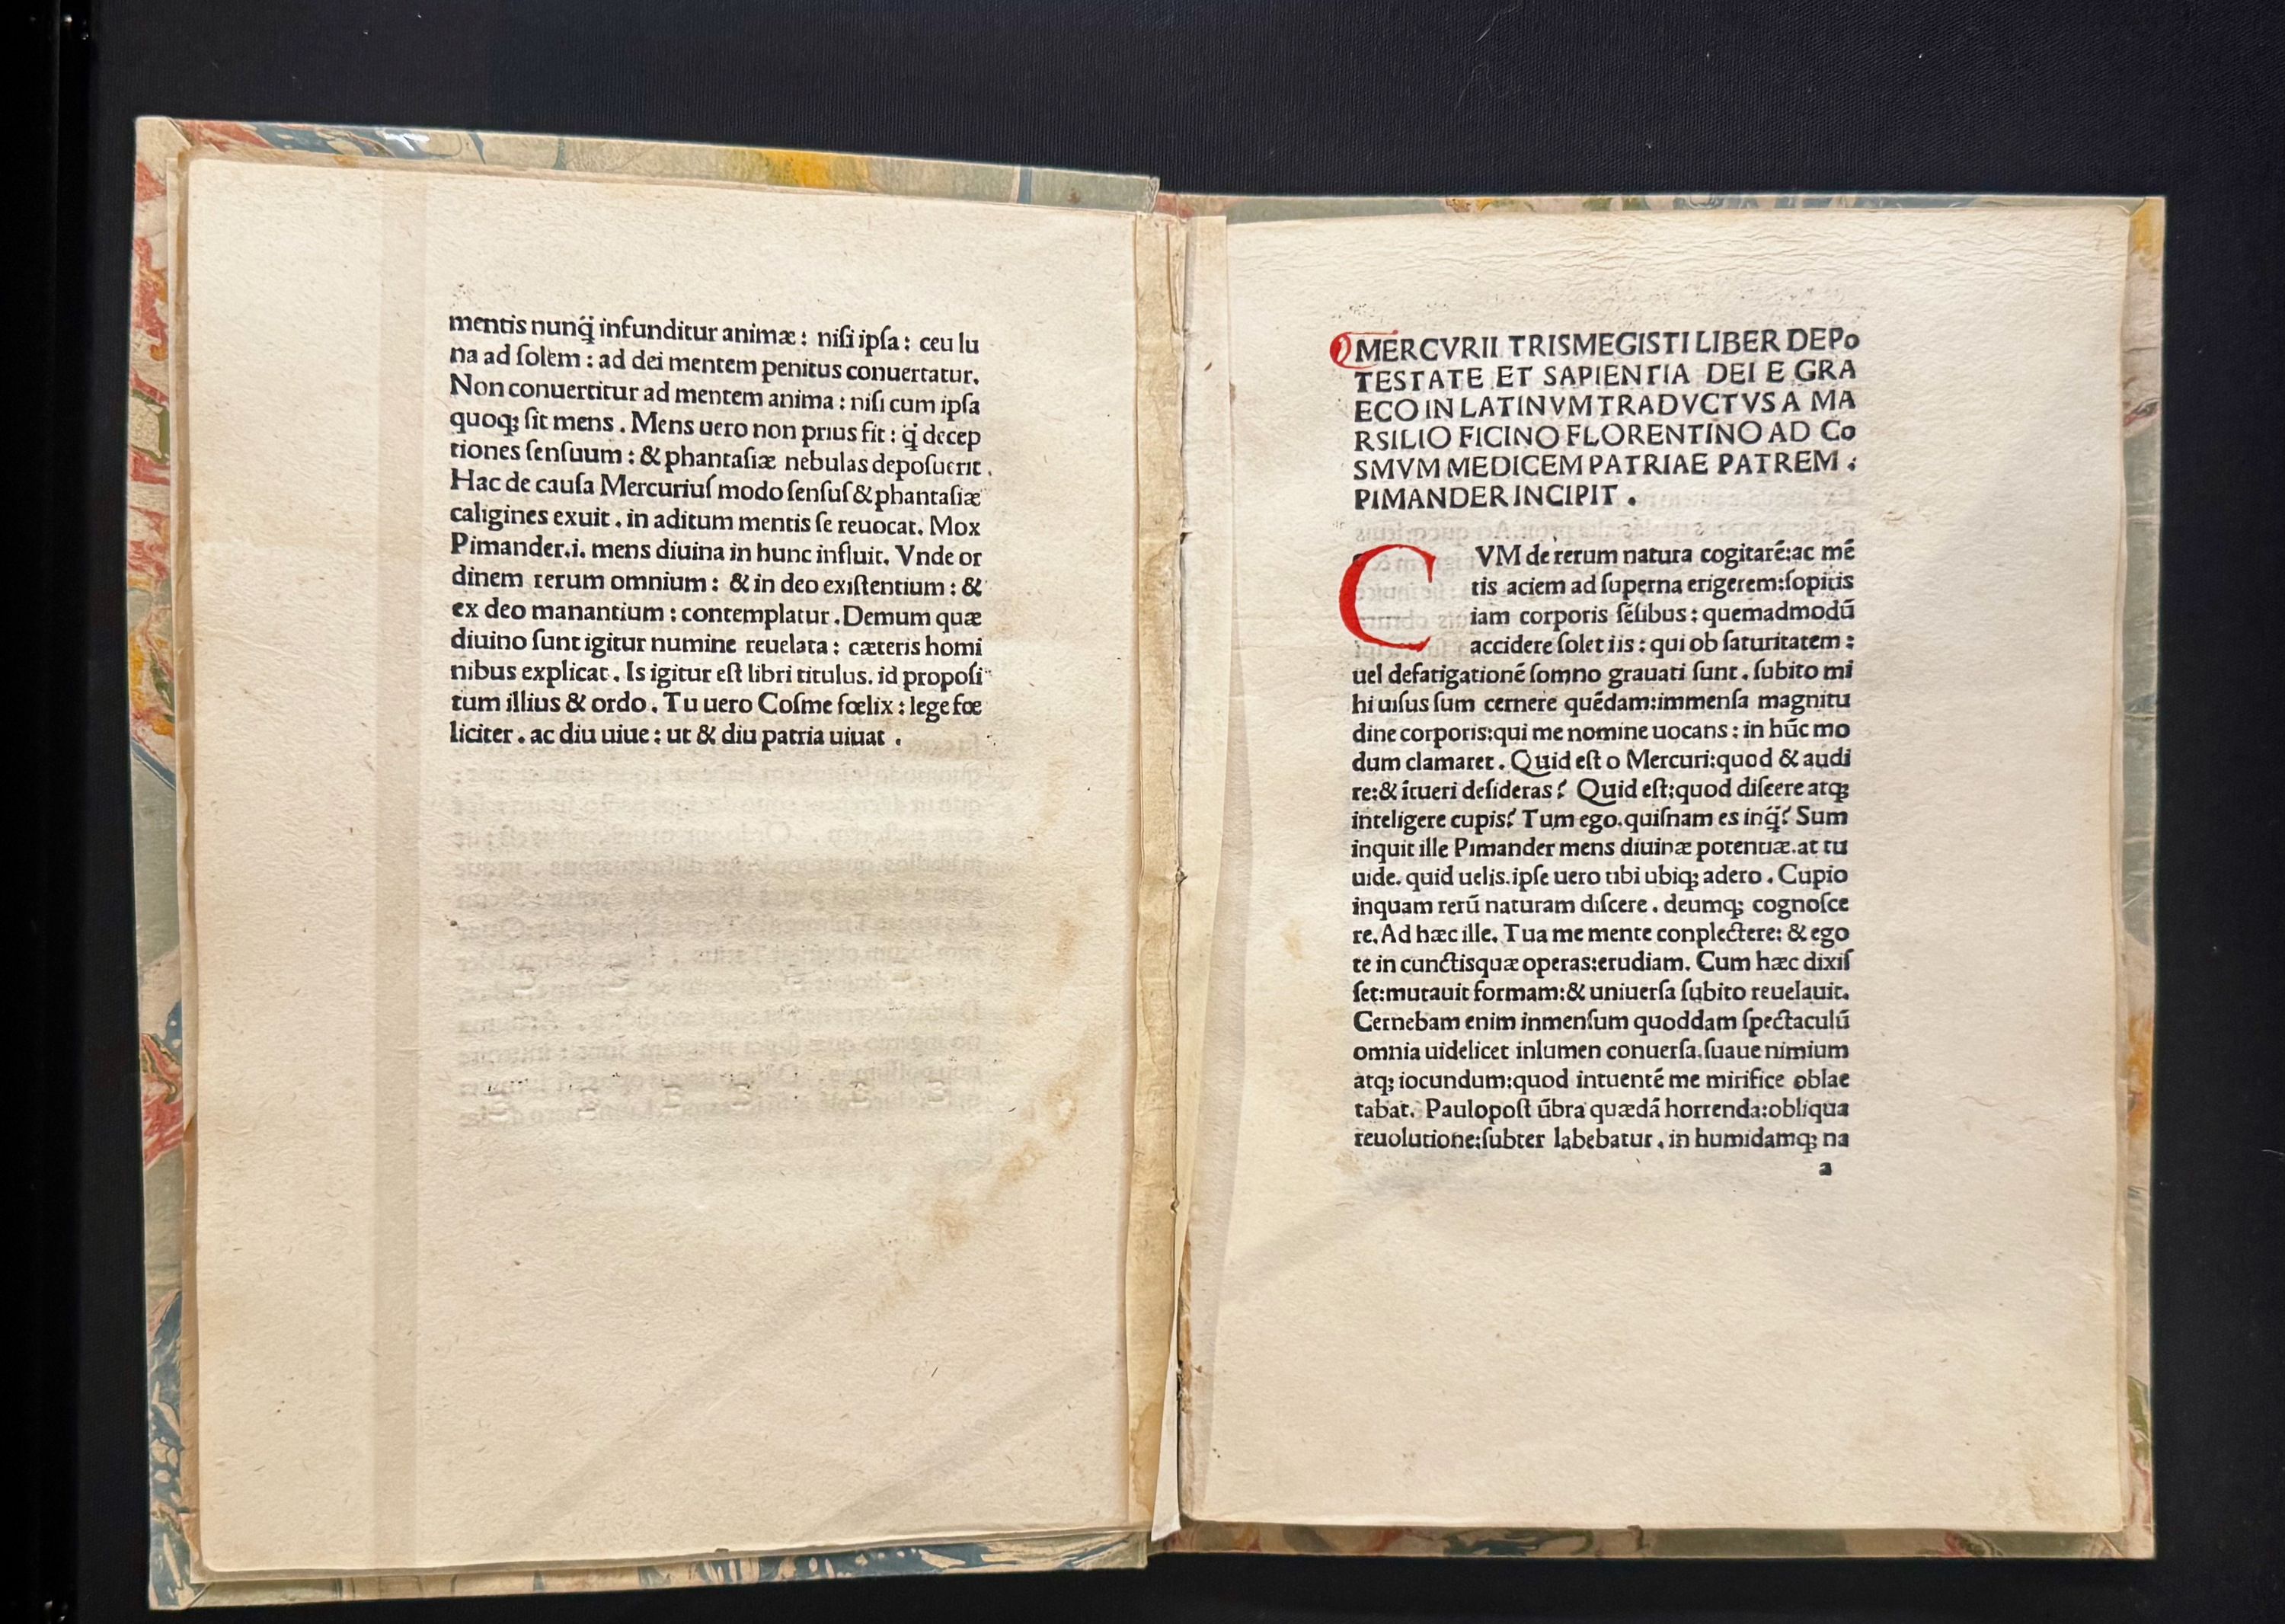 mentis nunq̃ infunditur animæ : niſi ipſa : ceu lu
na ad ſolem : ad dei mentem penitus conuertatur.
Non conuertitur ad mentem anima : niſi cum ipſa
quoq; ſit mens . Mens uero non prius fit : q̃ decep
tiones ſenſuum : & phantaſiæ nebulas depoſuerit .
Hac de cauſa Mercuriuſ modo ſenſuſ & phantaſiæ
caligines exuit . in aditum mentis ſe reuocat. Mox
Pimander.i. mens diuina in hunc influit. Vnde or
dinem rerum omnium : & in deo exiſtentium : &
ex deo manantium : contemplatur . Demum quæ
diuino ſunt igitur numine reuelata : cæteris homi
nibus explicat . Is igitur eſt libri titulus. id propoſi
tum illius & ordo . Tu uero Coſme fœlix : lege fœ
liciter . ac diu uiue : ut & diu patria uiuat .
MERCVRII TRISMEGISTI LIBER DE Po
TESTATE ET SAPIENTIA DEI E GRA
ECO IN LATINVM TRADVCTVS A MA
RSILIO FICINO FLORENTINO AD Co
SMVM MEDICEM PATRIAE PATREM .
PIMANDER INCIPIT .
CVM de rerum natura cogitarē:ac mē
tis aciem ad ſuperna erigerem:ſopitis
iam corporis ſēſibus : quemadmodū
accidere ſolet iis : qui ob ſaturitatem :
uel defatigationē ſomno grauati ſunt . ſubito mi
hi uiſus ſum cernere quēdam:immenſa magnitu
dine corporis:qui me nomine uocans : in hūc mo
dum clamaret . Quid eſt o Mercuri:quod & audi
re:& ītueri deſideras ? Quid eſt:quod diſcere atq;
inteligere cupis? Tum ego.quiſnam es inq̃? Sum
inquit ille Pimander mens diuinæ potentiæ.at tu
uide. quid uelis.ipſe uero tibi ubiq; adero . Cupio
inquam rerū naturam diſcere . deumq; cognoſce
re. Ad hæc ille. Tua me mente conplectere: & ego
te in cunctisquæ operas:erudiam. Cum hæc dixiſ
ſet:mutauit formam:& uniuerſa ſubito reuelauit.
Cernebam enim inmenſum quoddam ſpectaculū
omnia uidelicet inlumen conuerſa.ſuaue nimium
atq; iocundum:quod intuentē me mirifice oblae
tabat. Paulopoſt ūbra quædā horrenda:obliqua
reuolutione:ſubter labebatur . in humidamq; na
a